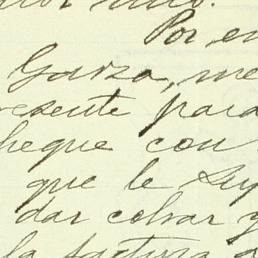 Por en
Garza, me
esente para
heque con
que le sup
dar cobrar y
la factura